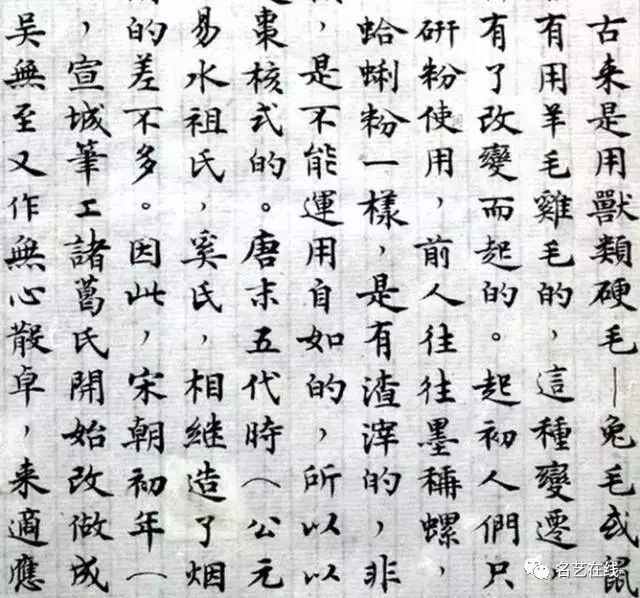 古来是用獸類硬毛—兔毛或鼠
有用羊毛雞毛的，這種變遷，
有了改變而起的。起初人們只
研粉使用，前人往往墨稱螺，
蛤蜊粉一樣，是有渣滓的，非
，是不能運用自如的，所以以
棗核式的。唐末五代時（公元
易水祖氏，奚氏，相继造了烟
的差不多。因此，宋朝初年（
，宣城筆工諸葛氏開始改做成
吴無至又作無心散卓，来適應
名艺在线